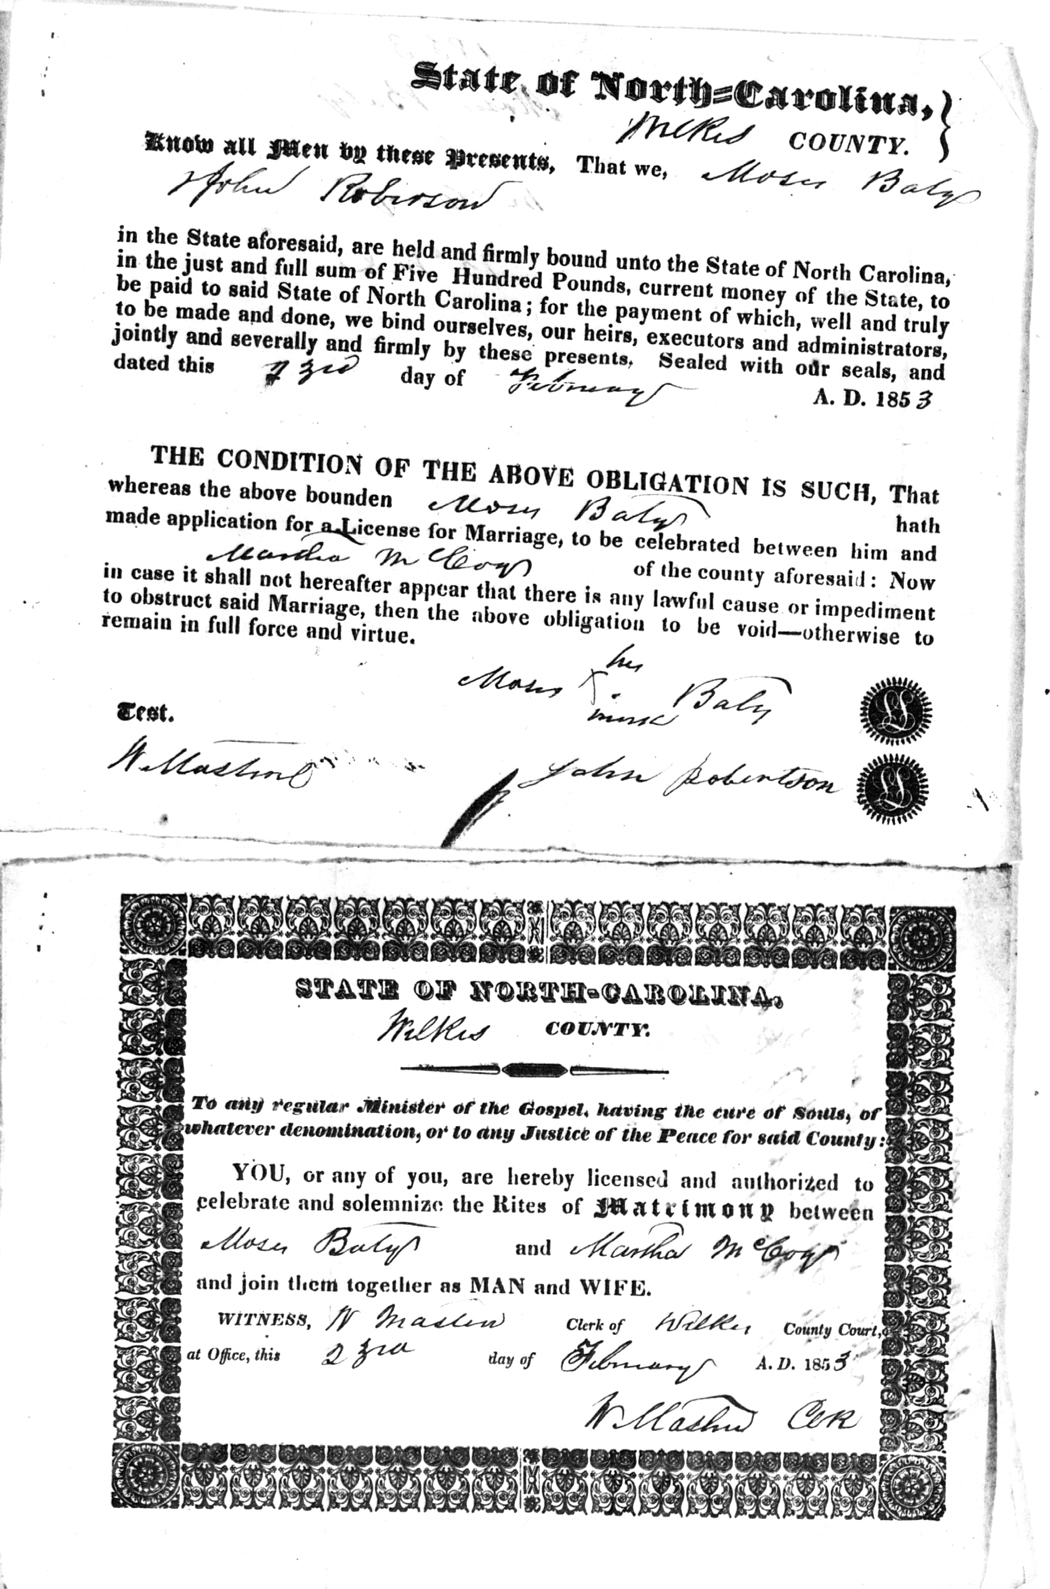 State of North-Carolina,
Wilkes COUNTY.
Know all Men by these Presents, That we, Moses Baty
& John Roberson
in the State aforesaid, are held and firmly bound unto the State of North Carolina,
in the just and full sum of Five Hundred Pounds, current money of the State, to
be paid to said State of North Carolina; for the payment of which, well and truly
to be made and done, we bind ourselves, our heirs, executors and administrators,
jointly and severally and firmly by these presents. Sealed with our seals, and
dated this 23rd day of February A. D. 1853
THE CONDITION OF THE ABOVE OBLIGATION IS SUCH, That
whereas the above bounden Moses Baty hath
made application for a License for Marriage, to be celebrated between him and
Martha McCoy of the county aforesaid: Now
in case it shall not hereafter appear that there is any lawful cause or impediment
to obstruct said Marriage, then the above obligation to be void—otherwise to
remain in full force and virtue.
his
Moses X Baty
mark
Test.
W Mastin John Robertson
STATE OF NORTH-CAROLINA,
Wilkes COUNTY.
To any regular Minister of the Gospel, having the cure of Souls, of
whatever denomination, or to any Justice of the Peace for said County:
YOU, or any of you, are hereby licensed and authorized to
celebrate and solemnize the Rites of Matrimony between
Moses Baty and Martha McCoy
and join them together as MAN and WIFE.
WITNESS, W Mastin Clerk of Wilkes County Court,
at Office, this 23rd day of February A. D. 1853
W Mastin Clk